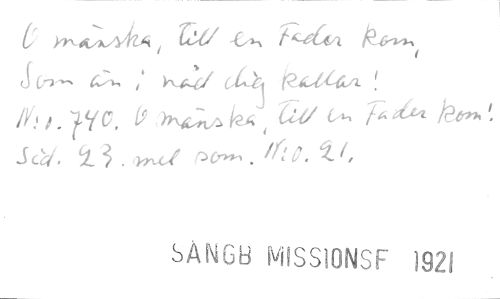 O mänska, till en Fader kom,
Som än i nåd dig kallar!
N:o. 740. O mänska, till en Fader kom!
Sid. 23. mel som. N:o. 21.
SÅNGB MISSIONSF 1921